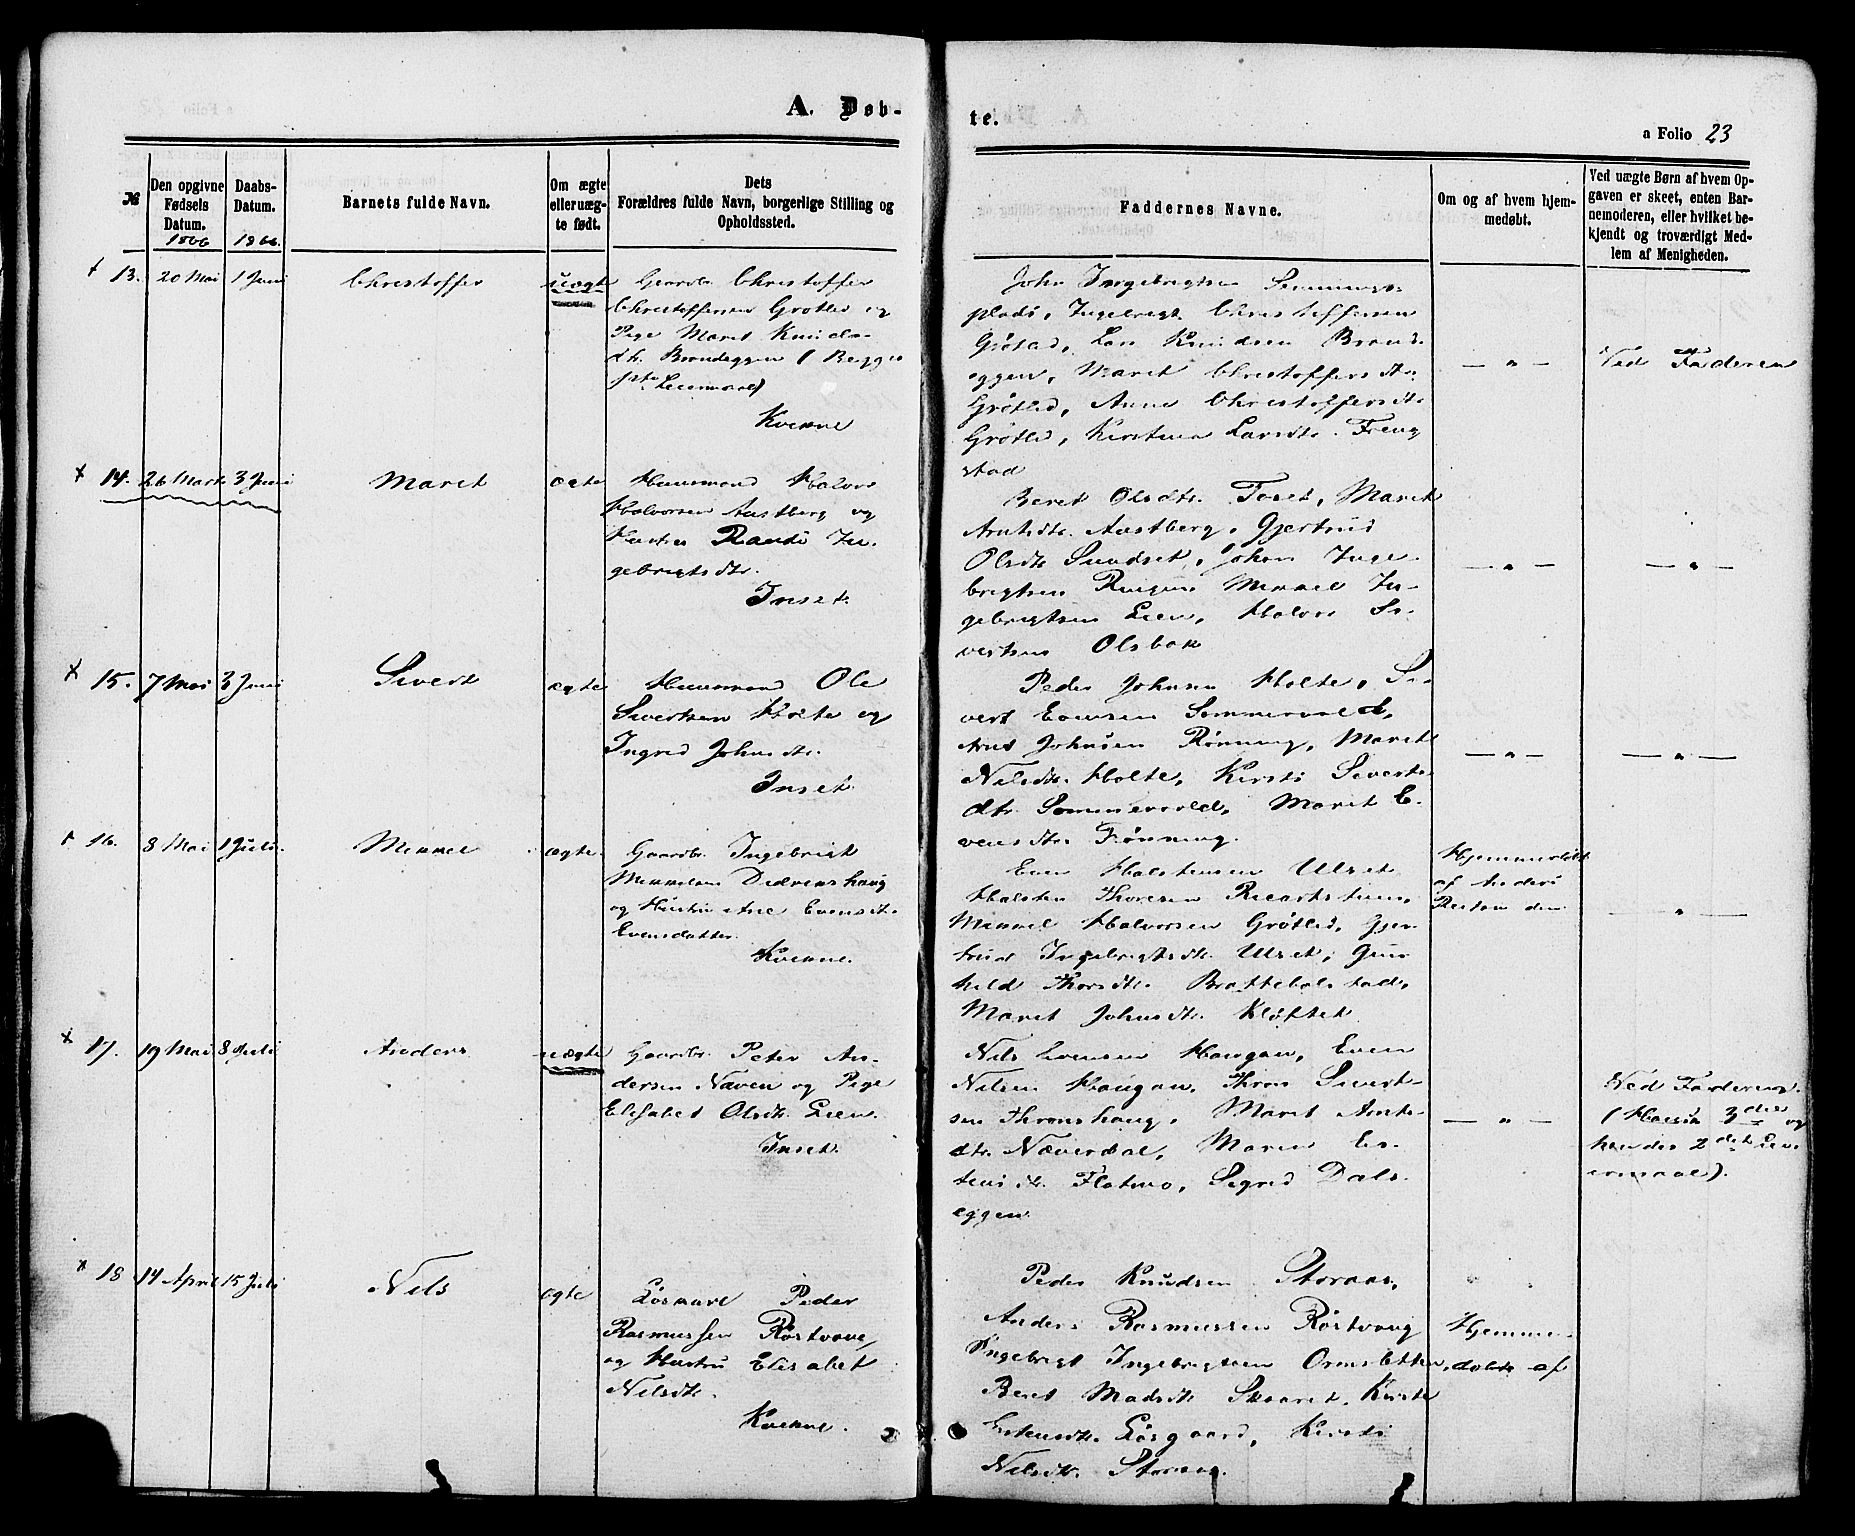 A. Døb-
te.
a Folio 23
№
Den opgivne
Fødsels
Datum.
1866
Daabs-
Datum.
1866.
Barnets fulde Navn.
Om ægte
eller uæg-
te født.
Dets
Forældres fulde Navn, borgerlige Stilling og
Opholdssted.
Faddernes Navne.
Om og af hvem hjem-
medøbt.
Ved uægte Børn af hvem Op-
gaven er skeet, enten Bar-
nemoderen, eller hvilket be-
kjendt og troværdigt Med-
lem af Menigheden.
13. 20 Mai 1 Juni Christoffer uægte
Gaardbr. Christoffer
Christoffersen Grøtli og
Pige Maret Knuds-
dtr. Brandeggen
Kvikne
John Ingebrigtsen
Ingebrigt Christoffersen
Lars Knudsen Brand-
eggen, Maret Christoffersdtr.
Grøtli, Anne Christoffersdtr.
Grøtli, Kirstine Larsdtr. Freng
stad
— " —
Ved Faderen
14. 26 Marts 3 Juni Maret ægte
Huusmand Halvor
Halvorsen Aastberg og
Hustru Randi In-
gebrigtsdtr.
Inset.
Beret Olsdtr. Toset, Maret
Arntsdtr. Aastberg, Gjertrud
Olsdtr. Sundset, Johan Inge-
brigtsen Mikkel In-
gebrigtsen Lien, Halvor Si-
vertsen Olsbak
— " —
— " —
15. 7 Mai 3 Juni Sivert ægte
Huusmand Ole
Sivertsen Holte og
Ingrid Johnsdtr.
Inset.
Peder Johnsen Holte, Si-
vert Evensen Sommervold,
Arnt Johnsen Rønning, Maret
Nilsdtr. Holte, Kirsti Siverts-
dtr. Sommervold, Maret E-
vensdtr. Rønning.
— " —
— " —
16. 8 Mai 1 Juli. Mikkel ægte.
Gaardbr. Ingebrigt
Mikkelsen Didrikshaug
og Hustru Ane Evensdtr.
Evensdatter.
Kvikne.
Even Halstensen Ulset
Halsten Thoresen
Mikkel Halvorsen Grøtli, Gjer-
trud Ingebrigtsdtr. Ulset, Gun-
hild Thorsdtr. Brattebolstad,
Maret Johnsdtr. Kløftet
Hjemmedøbt
af Anders
— " —
17. 19 Mai 8 Juli Anders uægte
Gaardbr. Peter An-
dersen Næven og Pige
Elisabet Olsdtr. Lien.
Inset.
Nils Evensen Haugan, Even
Nilsen Haugan, Thron Sivert-
sen Thronshaug, Maret Arnts-
dtr. Næverdal, Maren Es-
tensdtr. Flatmo, Sigrid Dals-
eggen
— " —
Ved Faderen.
(Hans 3die og
hendes 2det Lei-
ermaal).
18 14 April 15 Juli Nils ægte
Løskarl Peder
Rasmussen Røstvang
og Hustru Elisabet
Nilsdtr.
Kvikne.
Peder Knudsen Storaas,
Anders Rasmussen Røstvang
Ingebrigt Ingebrigtsen Ormsletten,
Beret Madsdtr. Skaaret, Kirsti
Estensdtr. Løsgaard, Kirsti
Nilsdtr. Storaas.
Hjemme-
døbt af